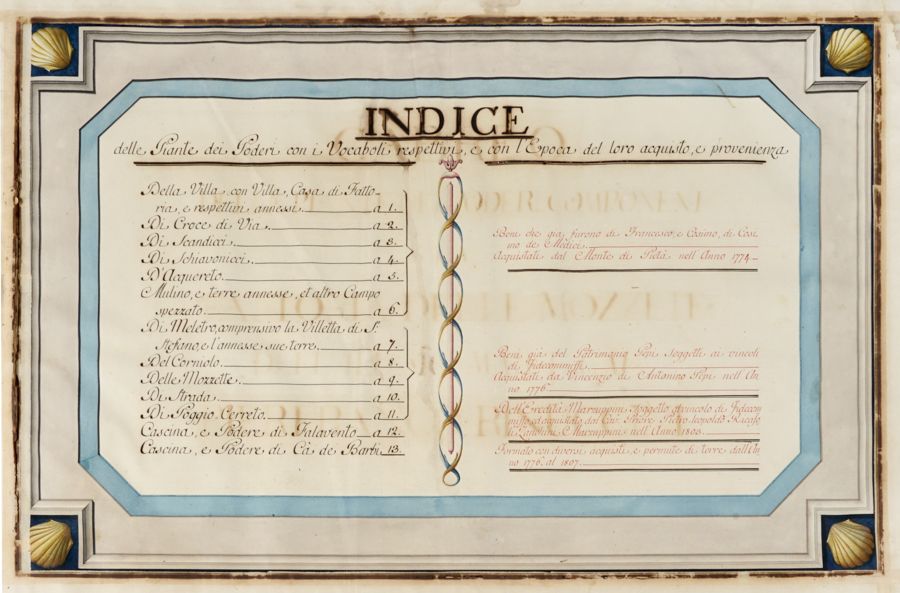 INDICE
delle Piante dei Poderi con i Vocaboli respettivi, e con l'Epoca del loro acquisto, e provenienza
Della Villa con Villa, Casa di Fatto-
ria, e respettivi annessi. a 1.
Di Croce di Via. a 2.
Di Scandicci. a 3.
Di Schiavonicci. a 4.
D'Acquereto. a 5.
Mulino, e terre annesse, et altro Campo
spezzato. a 6.
Di Meletro, comprensivo la Villetta di S.
Stefano, e l'annesse sue terre. a 7.
Del Corniolo. a 8.
Delle Mozzette. a 9.
Di Strada. a 10.
Di Poggio Cerreto. a 11.
Cascina, e Podere di Falavento a 12.
Cascina, e Podere di Cà de Barbi. 13.
Beni che già furono di Francesco, e Cosimo, di Cosi
mo de Medici.
Acquistati dal Monte di Pietà nell'Anno 1774
Beni già del Patrimonio Pepi Soggetti ai vincoli
di Fidecommissi.
Acquistati da Vincenzio di Antonino Pepi nell'An
no 1776.
Dell'Eredità Marzuppini Soggetto al vincolo di Fidecom
misso ed acquistato dal Cav. Priore Pietro Leopoldo Ricaso
li Zanchini Marzuppini nell'Anno 1803.
Formato con diversi acquisti, e permute di terre dall'An
no 1776. al 1807.